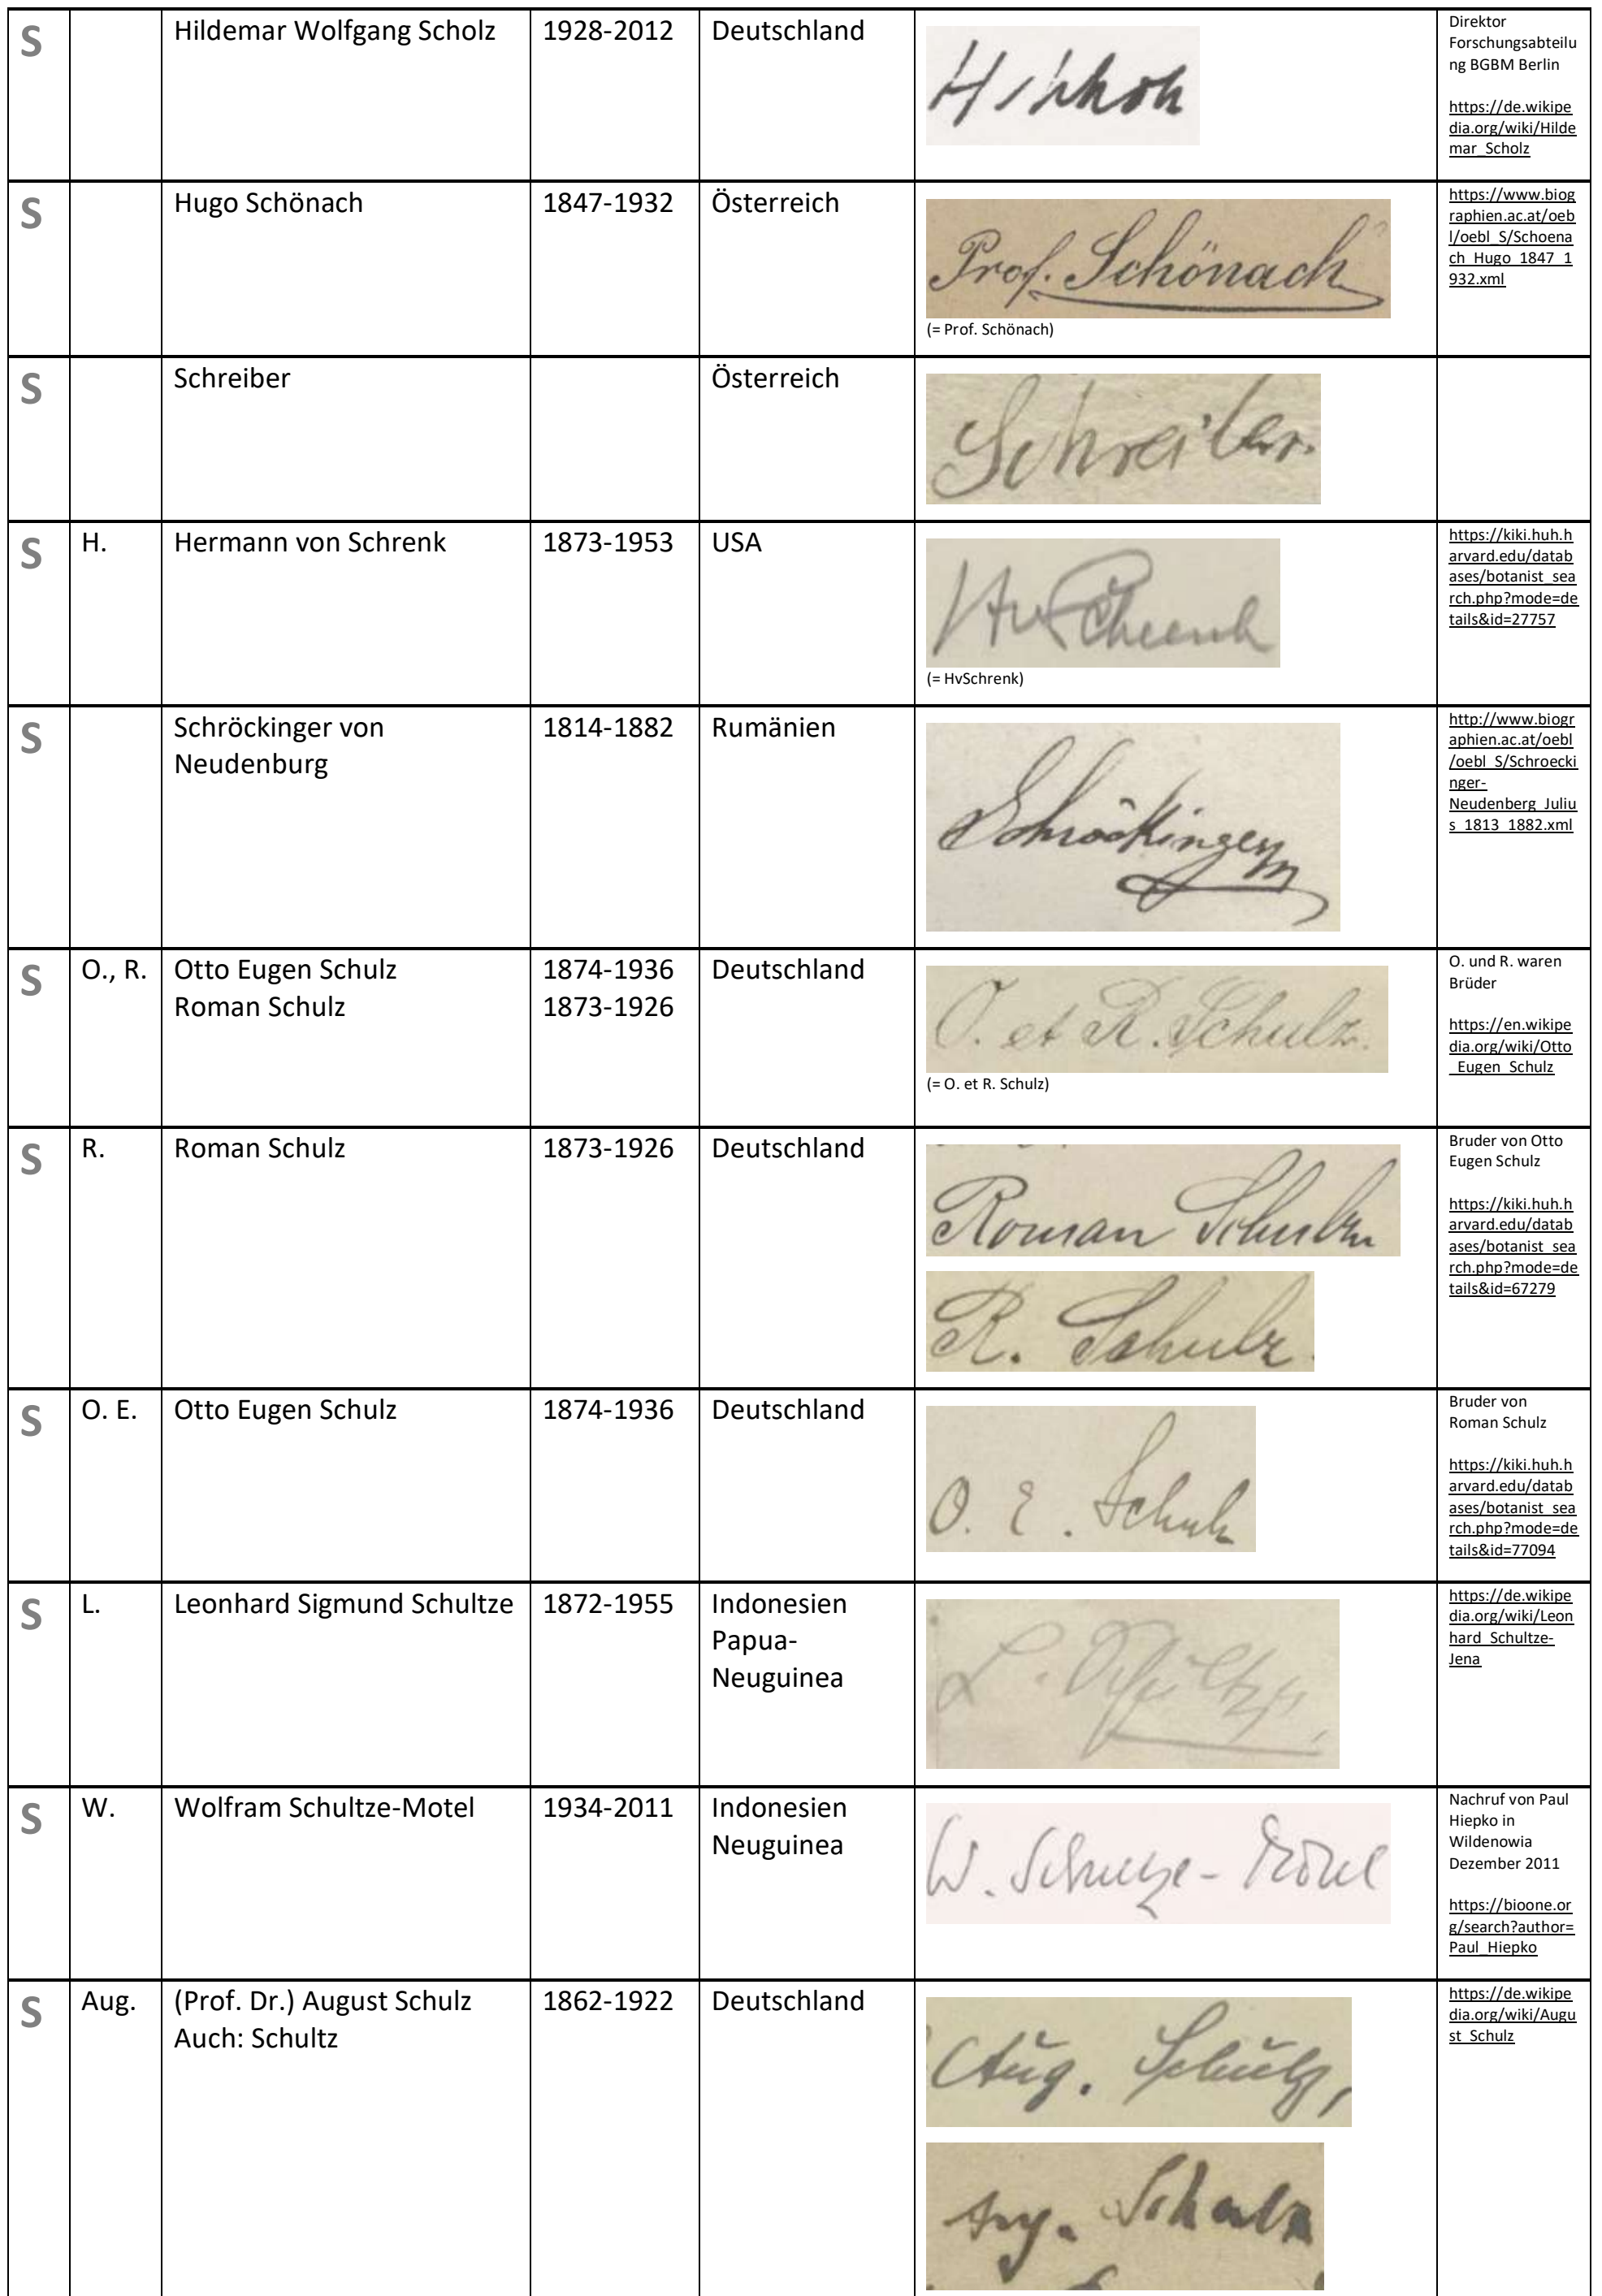 S
Hildemar Wolfgang Scholz
1928-2012
Deutschland
H Scholz
Direktor
Forschungsabteilu
ng BGBM Berlin
https://de.wikipe
dia.org/wiki/Hilde
mar_Scholz
S
Hugo Schönach
1847-1932
Österreich
Prof. Schönach
(= Prof. Schönach)
https://www.biog
raphien.ac.at/oeb
l/oebl_S/Schoena
ch_Hugo_1847_1
932.xml
S
Schreiber
Österreich
Schreiber.
S
H.
Hermann von Schrenk
1873-1953
USA
HvSchrenk
(= HvSchrenk)
https://kiki.huh.h
arvard.edu/datab
ases/botanist_sea
rch.php?mode=de
tails&id=27757
S
Schröckinger von
Neudenburg
1814-1882
Rumänien
Schröckinger
http://www.biogr
aphien.ac.at/oebl
/oebl_S/Schroecki
nger-
Neudenberg_Juliu
s_1813_1882.xml
S
O., R.
Otto Eugen Schulz
Roman Schulz
1874-1936
1873-1926
Deutschland
O. et R. Schulz.
(= O. et R. Schulz)
O. und R. waren
Brüder
https://en.wikipe
dia.org/wiki/Otto
_Eugen_Schulz
S
R.
Roman Schulz
1873-1926
Deutschland
Roman Schulz
R. Schulz.
Bruder von Otto
Eugen Schulz
https://kiki.huh.h
arvard.edu/datab
ases/botanist_sea
rch.php?mode=de
tails&id=67279
S
O. E.
Otto Eugen Schulz
1874-1936
Deutschland
O. E. Schulz
Bruder von
Roman Schulz
https://kiki.huh.h
arvard.edu/datab
ases/botanist_sea
rch.php?mode=de
tails&id=77094
S
L.
Leonhard Sigmund Schultze
1872-1955
Indonesien
Papua-
Neuguinea
L. Schultze
https://de.wikipe
dia.org/wiki/Leon
hard_Schultze-
Jena
S
W.
Wolfram Schultze-Motel
1934-2011
Indonesien
Neuguinea
W. Schultze-Motel
Nachruf von Paul
Hiepko in
Wildenowia
Dezember 2011
https://bioone.or
g/search?author=
Paul_Hiepko
S
Aug.
(Prof. Dr.) August Schulz
Auch: Schultz
1862-1922
Deutschland
Aug. Schulz,
Aug. Schulz
https://de.wikipe
dia.org/wiki/Augu
st_Schulz